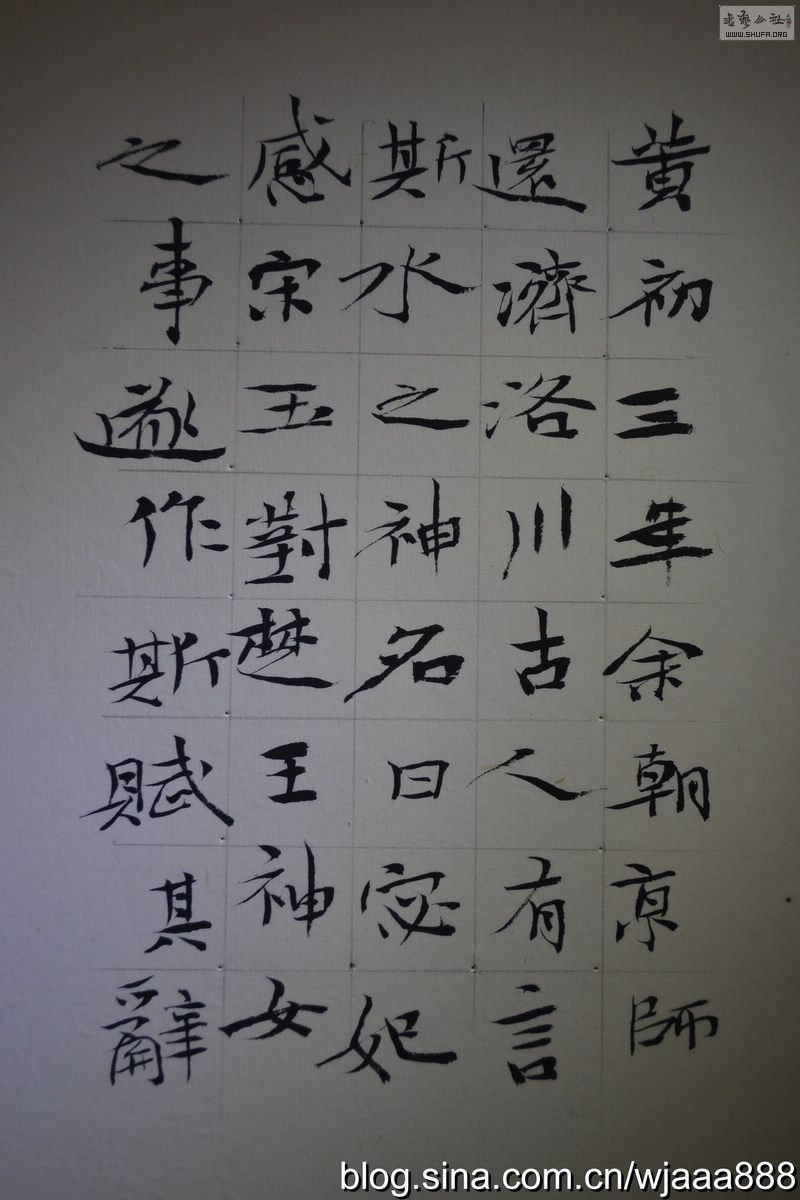 黄初三年余朝京師
還濟洛川古人有言
斯水之神名曰宓妃
感宋玉對楚王神女
之事遂作斯賦其辭
書藝公社
WWW.SHUFA.ORG
blog.sina.com.cn/wjaaa888